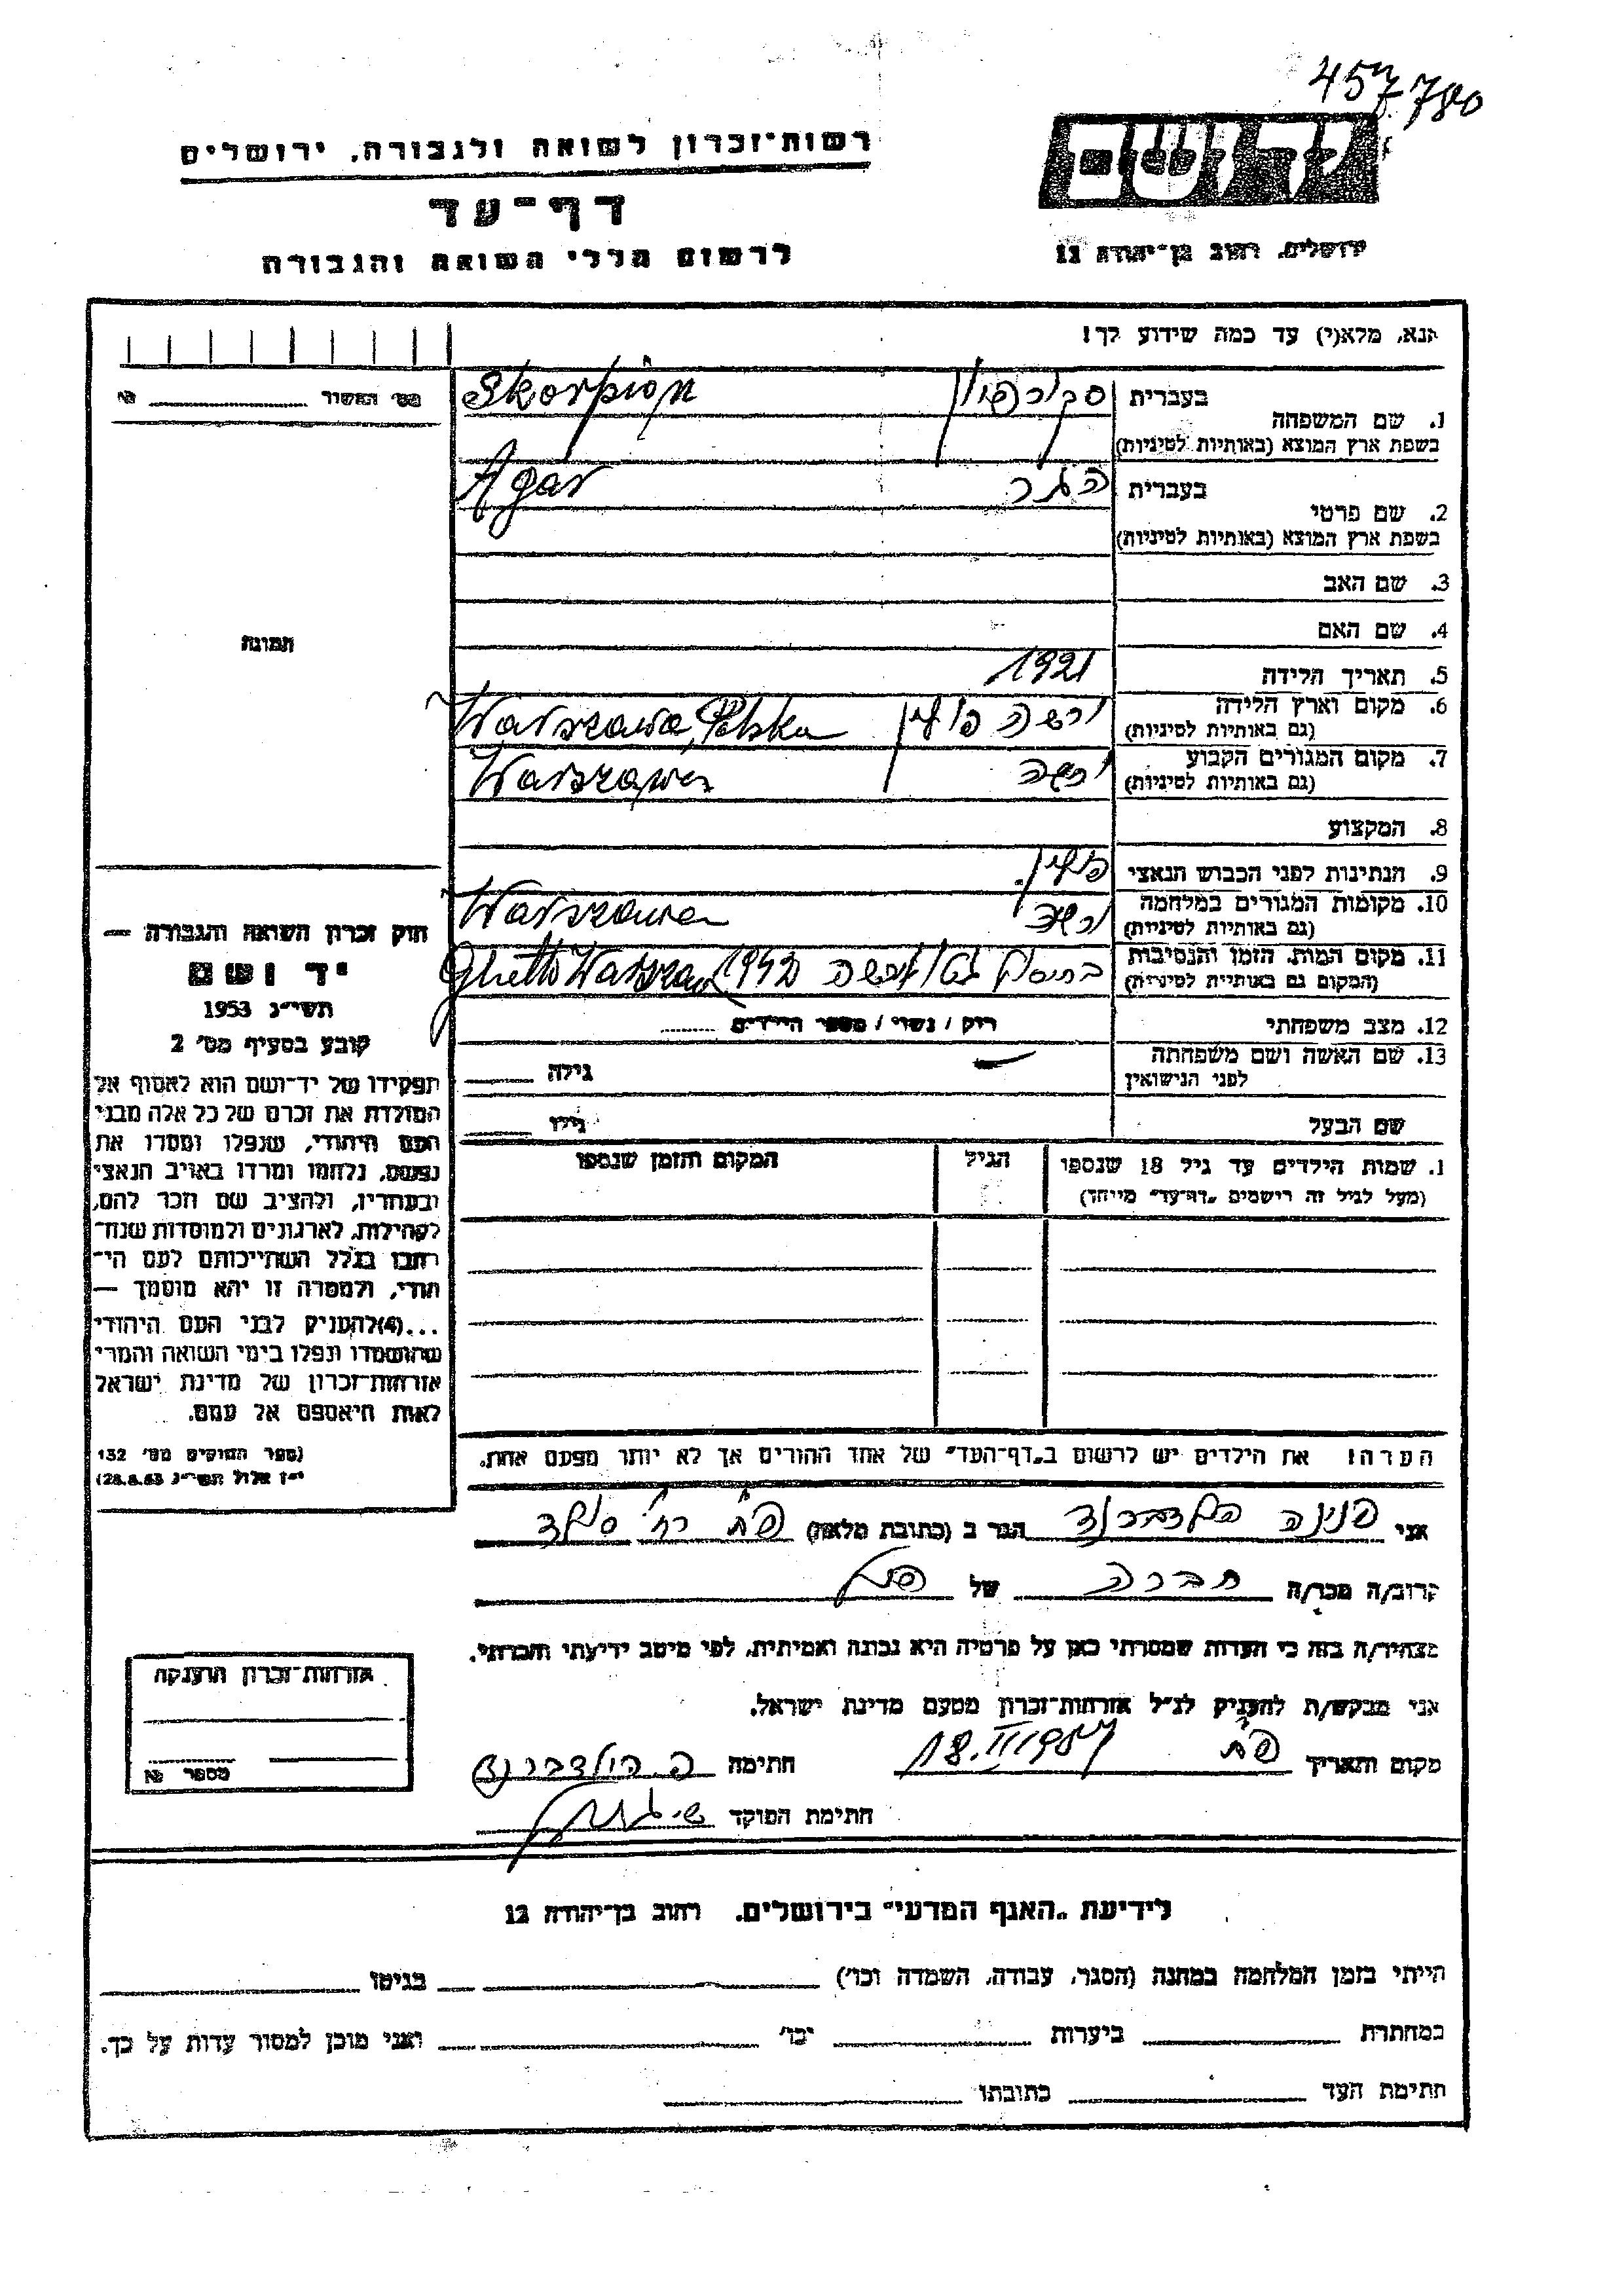 457780
רשות־זכרון לשואה ולגבורה, ירושלים
יד ושם
דף־עד
לרשום חללי השואה והגבורה
ירושלים, רחוב בן־יהודה 12
הנא, מלא(י) עד כמה שידוע לך!
מס' האשור № ______
1. שם המשפחה בעברית סקורפיון Skorpion
בשפת ארץ המוצא (באותיות לטיניות)
2. שם פרטי בעברית הגר Agar
בשפת ארץ המוצא (באותיות לטיניות)
3. שם האב
4. שם האם
תמונה
5. תאריך הלידה 1921
6. מקום וארץ הלידה ורשה פולין Warszawa, Polska
(גם באותיות לטיניות)
7. מקום המגורים הקבוע ורשה Warszawa
(גם באותיות לטיניות)
8. המקצוע
9. הנתינות לפני הכבוש הנאצי פולין.
10. מקומות המגורים במלחמה ורשה Warszawa
(גם באותיות לטיניות)
11. מקום המות, הזמן והנסיבות גטו ורשה 1942 Ghetto
(המקום גם באותיות לטיניות)
12. מצב משפחתי רוק / נשוי / מספר הילדים ........
13. שם האשה ושם משפחתה גילה ______
לפני הנישואין
שם הבעל גילו ______
חוק זכרון השואה והגבורה —
יד ושם
תשי״ג 1953
קובע בסעיף מס' 2
תפקידו של יד־ושם הוא לאסוף אל
המולדת את זכרם של כל אלה מבני
העם היהודי, שנפלו ומסרו את
נפשם, נלחמו ומרדו באויב הנאצי
ובעוזריו, ולהציב שם וזכר להם,
לקהילות, לארגונים ולמוסדות שנח־
רבו בגלל השתייכותם לעם הי־
הודי, ולמטרה זו יהא מוסמך —
...(4)להעניק לבני העם היהודי
שהושמדו ונפלו בימי השואה והמרי
אזרחות־זכרון של מדינת ישראל
לאות היאספם אל עמם.
(ספר החוקים מס' 132
י״ז אלול תשי״ג 28.8.53)
1. שמות הילדים עד גיל 18 שנספו הגיל המקום והזמן שנספו
(מעל לגיל זה רישמים „דף־עד״ מייחד)
הערה! את הילדים יש לרשום ב„דף־העד״ של אחד ההורים אך לא יותר מפעם אחת.
אני פנינה הילדברנד הגר ב (כתובת מלאה) פ״ת רח' סולד
קרוב/ה מכר/ה חברה של
מצהיר/ה בזה כי העדות שמסרתי כאן על פרטיה היא נכונה ואמיתית, לפי מיטב ידיעתי והכרתי.
אני מבקש/ת להעניק לנ״ל אזרחות־זכרון מטעם מדינת ישראל.
מקום ותאריך פ״ת 18.II 1957 חתימה פ. הילדברנד
חתימת הפוקד
אזרחות־זכרון הוענקה
מספר №
לידיעת „האגף המדעי״ בירושלים, רחוב בן־יהודה 12
הייתי בזמן המלחמה במחנה (הסגר, עבודה, השמדה וכו') ______ בגיטו ______
במחתרת ______ ביערות ______ וכו' ______ ואני מוכן למסור עדות על כך.
חתימת העד ______ כתובתו ______